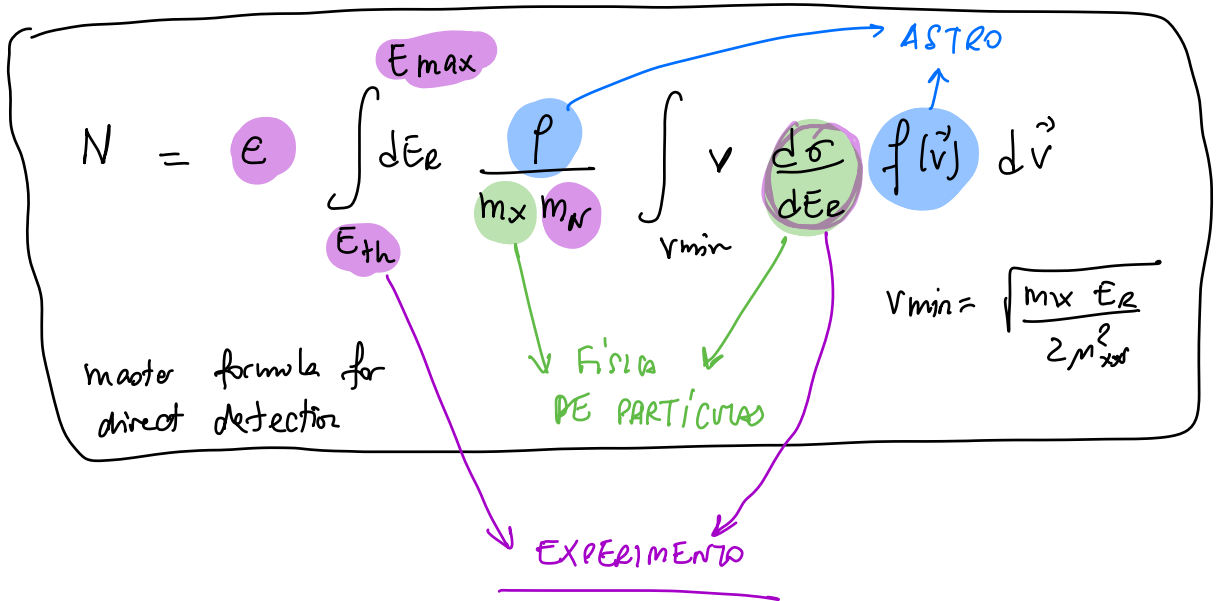 ASTRO
N = e ∫_{E_th}^{E_max} dE_R ρ / (m_χ m_N) ∫_{v_min} v dσ/dE_R f(v⃗) dv⃗
v_min = √(m_χ E_R / 2μ²)
master formula for
direct detection
FÍSICA
DE PARTÍCULAS
EXPERIMENTO